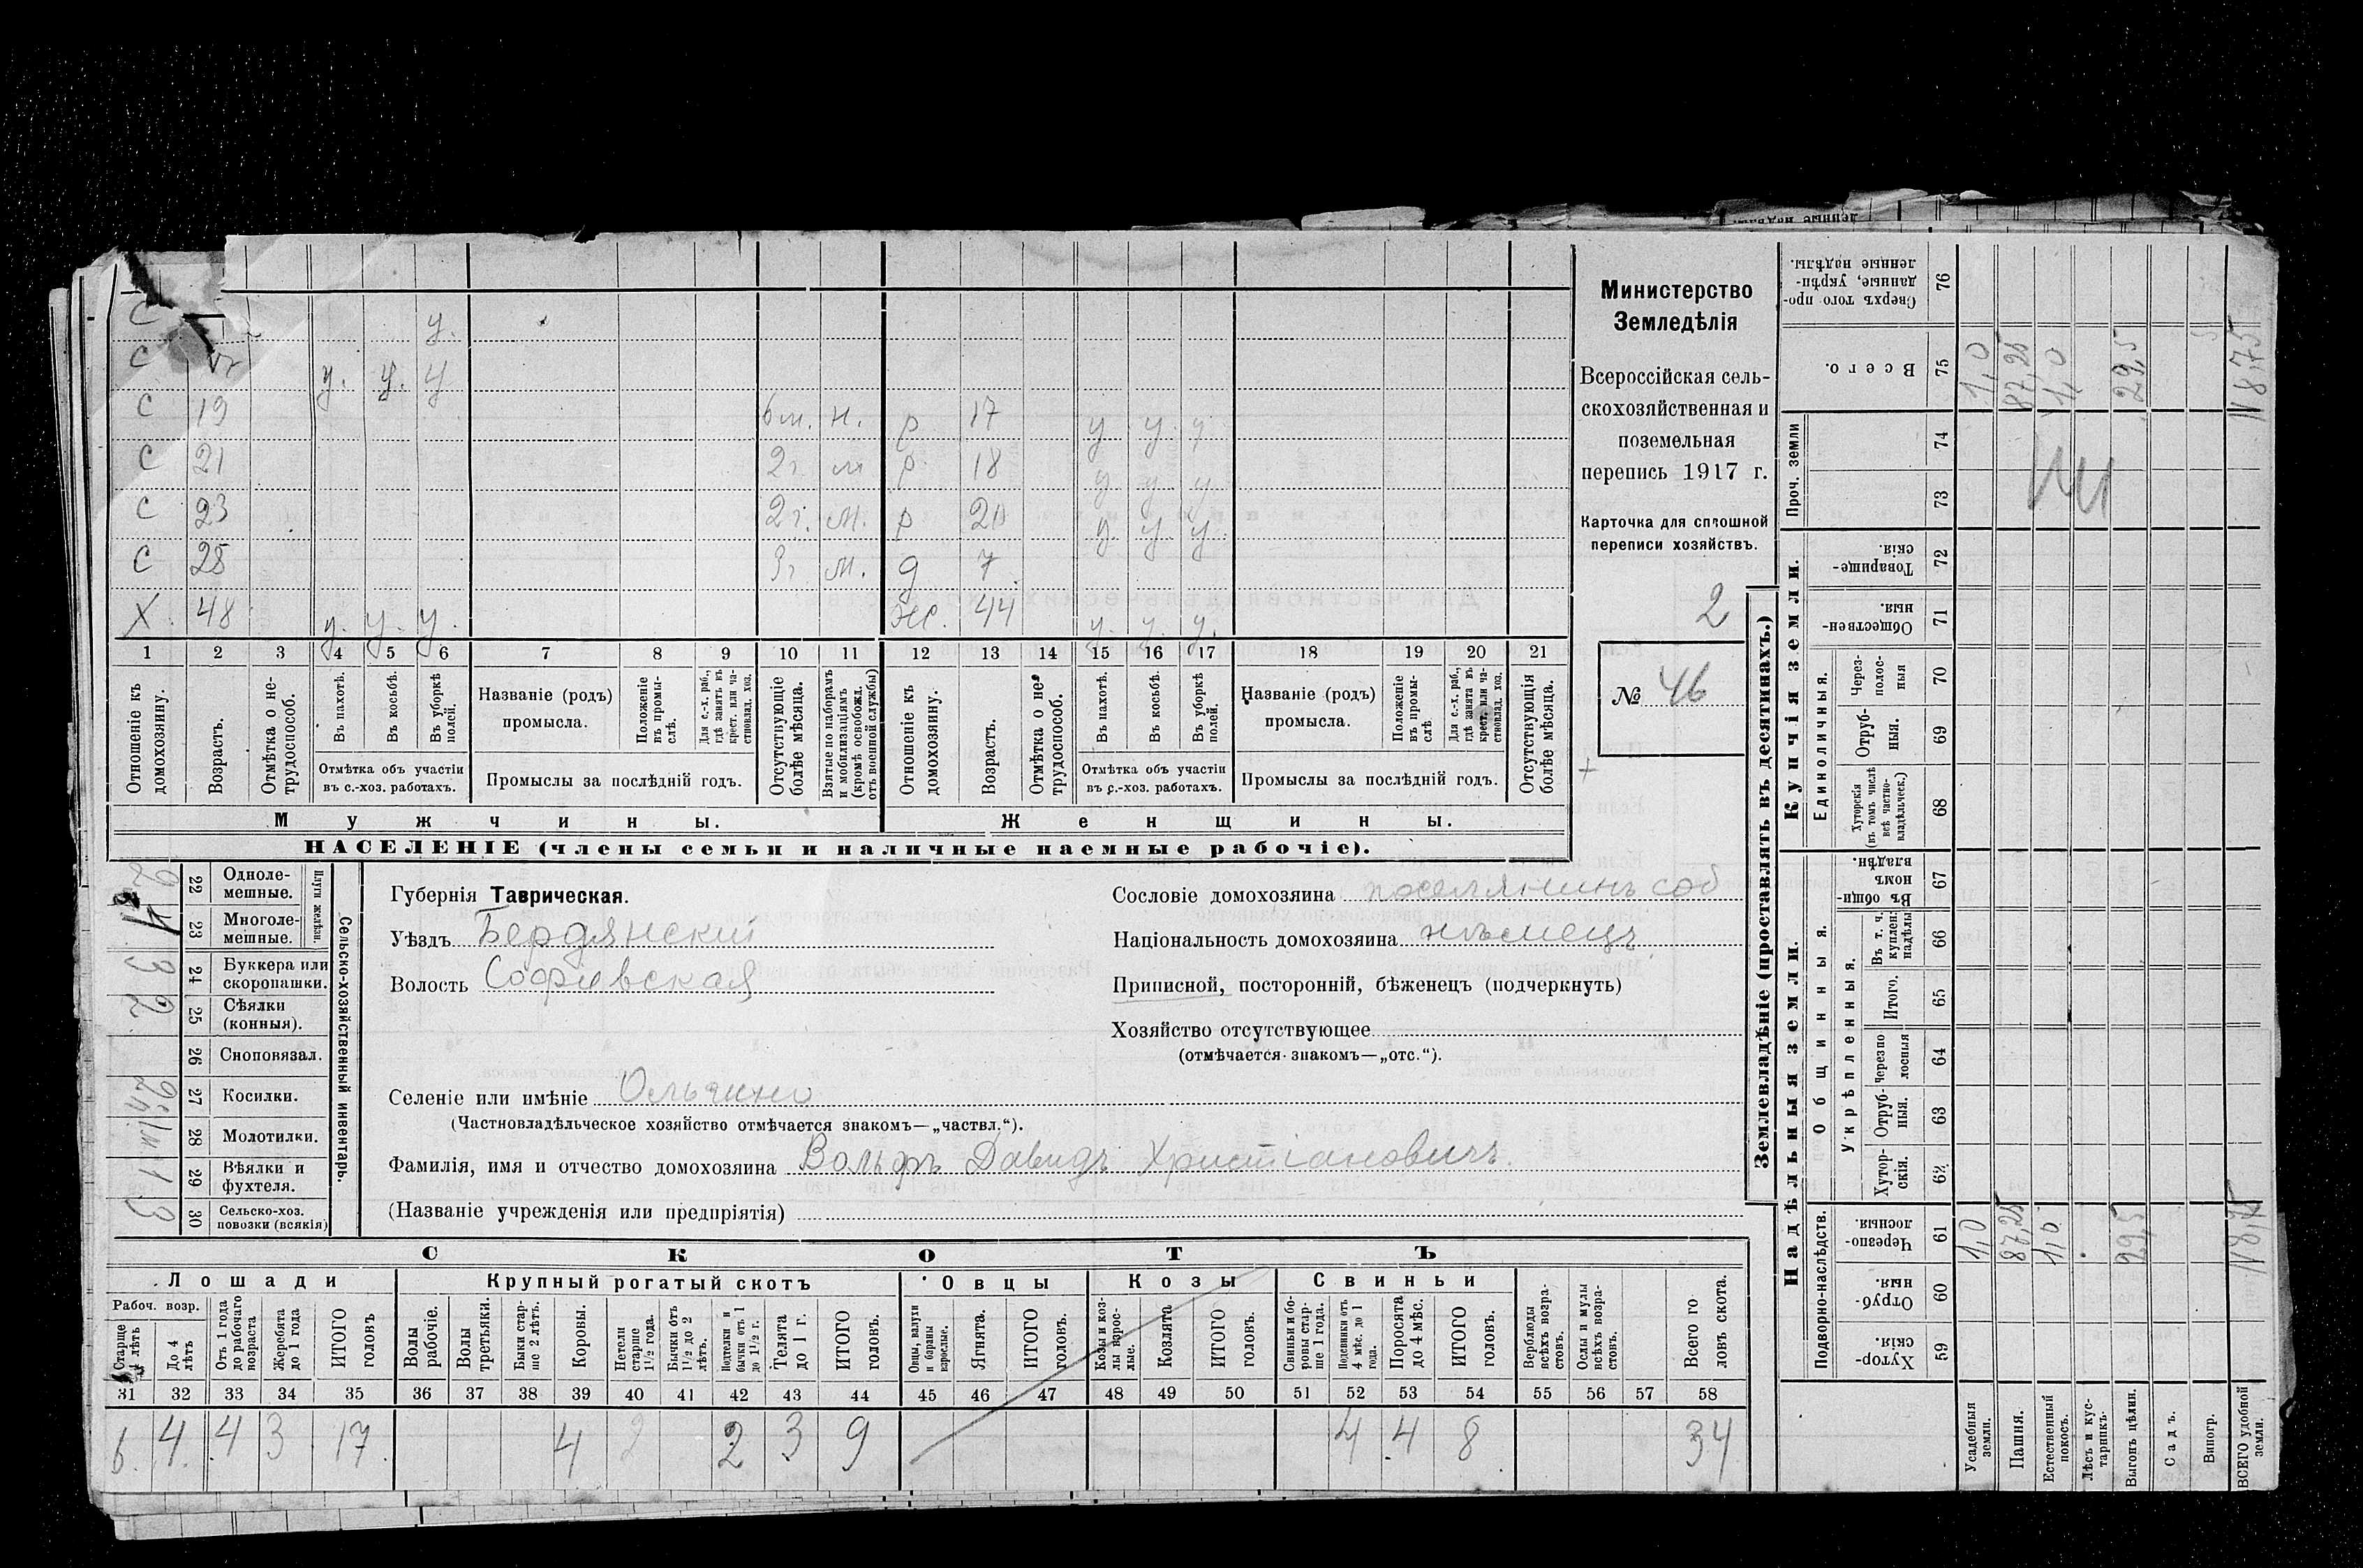 С у.
С у. у. у
С 19 6 м. н. р 17 у у. у
С 21 2 г. м р. 18 у у у
С 23 2 г. м. р 20 у. у у.
С 25 3 г м. д 7
Х. 48 у. у. у. ж. 44 у. у. у.
1 2 3 4 5 6 7 8 9 10 11 12 13 14 15 16 17 18 19 20 21
Отношеніе къ домохозяину.
Возрастъ.
Отмѣтка о нетрудоспособ.
Въ пахотѣ.
Въ косьбѣ.
Въ уборкѣ полей.
Отмѣтка объ участіи въ с.-хоз. работахъ.
Названіе (родъ) промысла.
Положеніе въ промыслѣ.
Для с.-х. раб., гдѣ занятъ въ крест. или частновлад. хоз.
Промыслы за послѣдній годъ.
Отсутствующіе болѣе мѣсяца.
Взятые по наборамъ и мобилизаціямъ (кромѣ освобожд. отъ военной службы)
Отношеніе къ домохозяину.
Возрастъ.
Отмѣтка о нетрудоспособ.
Въ пахотѣ.
Въ косьбѣ.
Въ уборкѣ полей.
Отмѣтка объ участіи въ с.-хоз. работахъ.
Названіе (родъ) промысла.
Положеніе въ промыслѣ
Для с.-х. раб., гдѣ занята въ крест. или частновлад. хоз.
Промыслы за послѣдній годъ.
Отсутствующія болѣе мѣсяца.
Мужчины. Женщины.
НАСЕЛЕНІЕ (члены семьи и наличные наемные рабочіе).
Министерство
Земледѣлія
Всероссійская сель-
скохозяйственная и
поземельная
перепись 1917 г.
Карточка для сплошной
переписи хозяйствъ.
2
№ 46
Сельско-хозяйственный инвентарь.
Плуги желѣзн.
22 Одноле-мешные.
23 Многоле-мешные. 1
24 Буккера или скоропашки. 3
25 Сѣялки (конныя). 2
26 Сноповязал.
27 Косилки. 2
28 Молотилки.
29 Вѣялки и фухтеля. 1
30 Сельско-хоз. повозки (всякія) 3
Губернія Таврическая.
Уѣздъ Бердянскій
Волость Софіевская
Сословіе домохозяина поселянинъ соб
Національность домохозяина нѣмецъ
Приписной, посторонній, бѣженецъ (подчеркнуть)
Хозяйство отсутствующее
(отмѣчается знакомъ—„отс.“).
Селеніе или имѣніе Ольгино
(Частновладѣльческое хозяйство отмѣчается знакомъ—„частвл.“).
Фамилія, имя и отчество домохозяина Вольфъ Давидъ Христіановичъ.
(Названіе учрежденія или предпріятія)
СКОТЪ
Лошади Крупный рогатый скотъ Овцы Козы Свиньи
Рабоч. возр.
Старще 4 лѣтъ
До 4 лѣтъ
Отъ 1 года до рабочаго возраста
Жеребята до 1 года
ИТОГО головъ
Волы рабочіе.
Волы третьяки.
Быки старше 2 лѣтъ.
Коровы.
Нетели старше 1½ года.
Бычки отъ 1½ до 2 лѣтъ.
Подтелки и бычки отъ 1 до 1½ г.
Телята до 1 г.
ИТОГО головъ.
Овцы, валухи и бараны взрослые.
Ягнята.
ИТОГО головъ.
Козы и козлы взрослые.
Козлята
ИТОГО головъ.
Свиньи и боровы старше 1 года.
Подсвинки отъ 4 мѣс. до 1 года.
Поросята до 4 мѣс.
ИТОГО головъ.
Верблюды всѣхъ возрастовъ.
Ослы и мулы всѣхъ возрастовъ.
Всего головъ скота.
31 32 33 34 35 36 37 38 39 40 41 42 43 44 45 46 47 48 49 50 51 52 53 54 55 56 57 58
6. 4. 4 3 17 4 2 3 9 4 4 8 34
Землевладѣніе (проставлять въ десятинахъ.)
Сверхъ того проданные, укрѣпленные надѣлы. 76
Всего. 75 1,0 87,25 1,0 29,5 118,75
Проч. земли 74 73
Купчія земли.
Товарищескія 72
Общественныя. 71
Единоличныя.
Черезполосныя 70
Отрубныя. 69
Хуторскія (въ томъ числѣ всѣ частновладѣльческ.) 68
Надѣльныя земли.
Общинныя.
Въ общинномъ владѣн. 67
Укрѣпленныя.
Въ т. ч. куплен. надѣлы 66
Итого. 65
Черезполосныя 64
Отрубныя. 63
Хуторскія. 62
Подворно-наслѣдств.
Черезполосныя. 61 1,0 87,25 1,0 29,5 118,75
Отрубныя. 60
Хуторскія. 59
Усадебныя земли.
Пашня.
Естественный покосъ.
Лѣсъ и кустарникъ.
Выгонъ цѣлин.
Садъ.
Виногр.
ВСЕГО удобной земли.